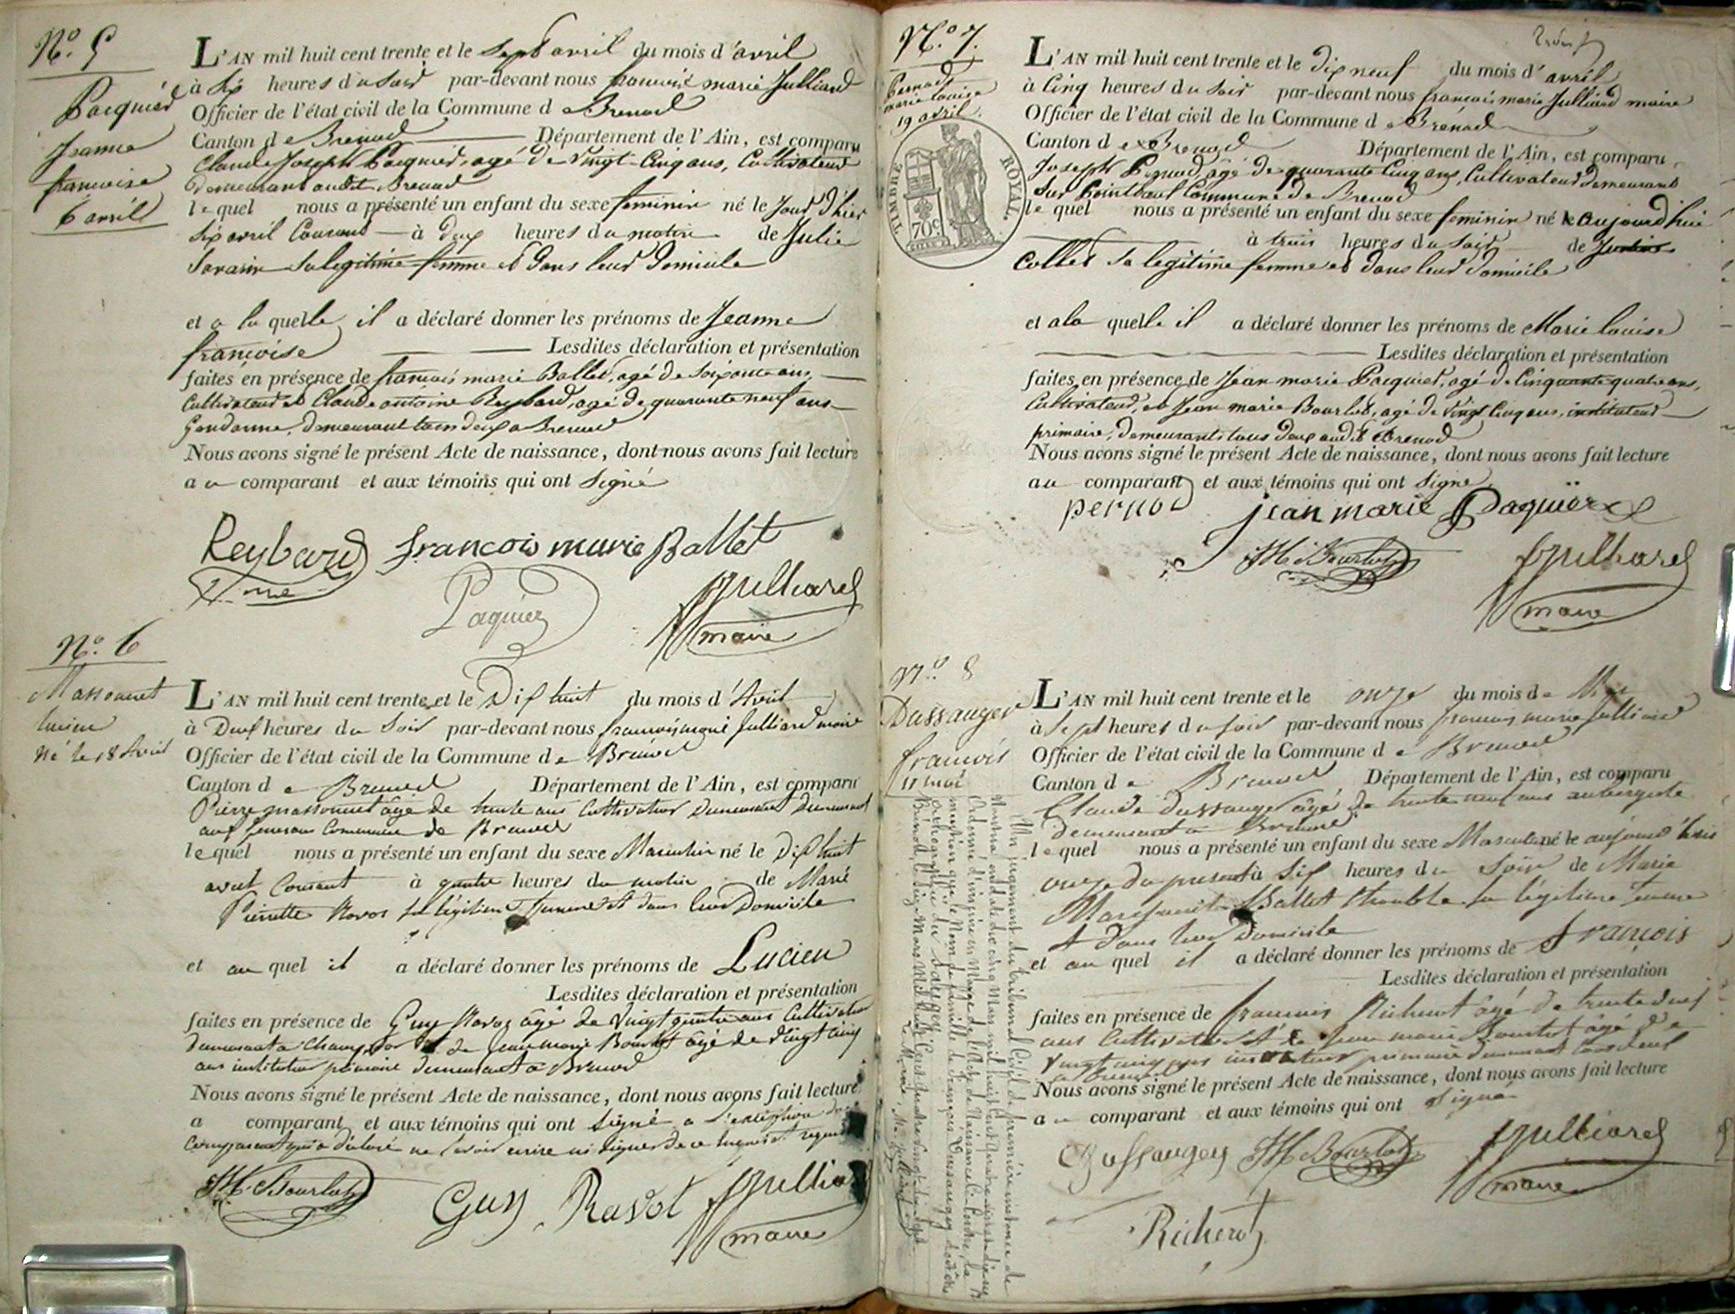 N.o 5
Pacquier
Jeanne
françoise
6 avril
L'AN mil huit cent trente et le Sept avril du mois d'avril
à Six heures du Soir par-devant nous françois marie Julliard
Officier de l'état civil de la Commune de Brenod
Canton de Brenod Département de l'Ain, est comparu
Claude Joseph Pacquier, agé de Vingt-Cinq ans, Cultivateur
demeurant audit Brenod
lequel nous a présenté un enfant du sexe feminin né le Jour d'hier
Six avril Courant à deux heures du matin de Julie
Savarin Sa legitime femme et dans leur domicile
et a la quelle il a déclaré donner les prénoms de Jeanne
françoise Lesdites déclaration et présentation
faites en présence de françois marie Ballet, agé de Soixante ans,
Cultivateur et Claude antoine Reybard, agé de quarante neuf ans
Gendarme, demeurant tous deux a Brenod
Nous avons signé le présent Acte de naissance, dont nous avons fait lecture
au comparant et aux témoins qui ont Signé
Reybard françois marie Ballet
Paquier Julliard
maire
N.o 6
Massonnet
lucien
Né le 18 Avril
L'AN mil huit cent trente et le Dix huit du mois d'Avril
à Deux heures du Soir par-devant nous françois marie Julliard maire
Officier de l'état civil de la Commune de Brenod
Canton de Brenod Département de l'Ain, est comparu
Pierre massonnet âgé de trente ans Cultivateur Demeurant
Commune de Brenod
lequel nous a présenté un enfant du sexe Masculin né le Dix huit
avril Courant à quatre heures du matin de Marie
Pierrette Ravot Sa légitime femme et dans leur Domicile
et au quel il a déclaré donner les prénoms de Lucien
Lesdites déclaration et présentation
faites en présence de Guy Ravot âgé de Vingt quatre ans Cultivateur
demeurant a Champdor et de Jean Marie Bourlot âgé de Vingt cinq
ans instituteur primaire demeurant a Brenod
Nous avons signé le présent Acte de naissance, dont nous avons fait lecture
a comparant et aux témoins qui ont Signé a l'exception du
comparant qui a déclaré ne savoir ecrire ni signer de ce enquis et requis
JM Bourlot Guy Ravot Julliard
maire
N.o 7.
Pernod
marie louise
19 avril
TIMBRE ROYAL
70c
L'AN mil huit cent trente et le dix neuf du mois d'avril
à Cinq heures du Soir par-devant nous françois marie Julliard maire
Officier de l'état civil de la Commune de Brénod
Canton de Brenod Département de l'Ain, est comparu
Joseph Pernod, agé de quarante Cinq ans, Cultivateur demeurant
Sur Commune de Brenod
lequel nous a présenté un enfant du sexe feminin né le aujourd'hui
à trois heures du Soir de
Collet Sa legitime femme et dans leur domicile
et a la quelle il a déclaré donner les prénoms de Marie louise
Lesdites déclaration et présentation
faites en présence de Jean marie Pacquier, agé de Cinquante quatre ans,
Cultivateur, et Jean marie Bourlot, agé de Vingt Cinq ans, instituteur
primaire, demeurants tous deux audit Brenod
Nous avons signé le présent Acte de naissance, dont nous avons fait lecture
au comparant et aux témoins qui ont Signé
pernod jean marie Paquier
JM Bourlot Julliard
maire
N.o 8
Dussauger
françois
11 mai
L'AN mil huit cent trente et le onze du mois de Mai
à Sept heures du soir par-devant nous françois marie Julliard
Officier de l'état civil de la Commune de Brenod
Canton de Brenod Département de l'Ain, est comparu
Claude Dussauger âgé de trente neuf ans aubergiste
demeurant a Brenod
lequel nous a présenté un enfant du sexe Masculin né le aujourd'hui
onze du present à Six heures du Soir de Marie
Marguerite Ballet sa légitime femme
et dans leur Domicile
et au quel il a déclaré donner les prénoms de François
Lesdites déclaration et présentation
faites en présence de françois Richerot âgé de trente deux
ans Cultivateur et de Jean marie Bourlot âgé de
vingt cinq ans instituteur primaire demeurant tous deux
a Brenod
Nous avons signé le présent Acte de naissance, dont nous avons fait lecture
au comparant et aux témoins qui ont Signé
Dussaugey JM Bourlot Julliard
maire
Richerot
Un jugement du tribunal Civil de première instance de
Nantua